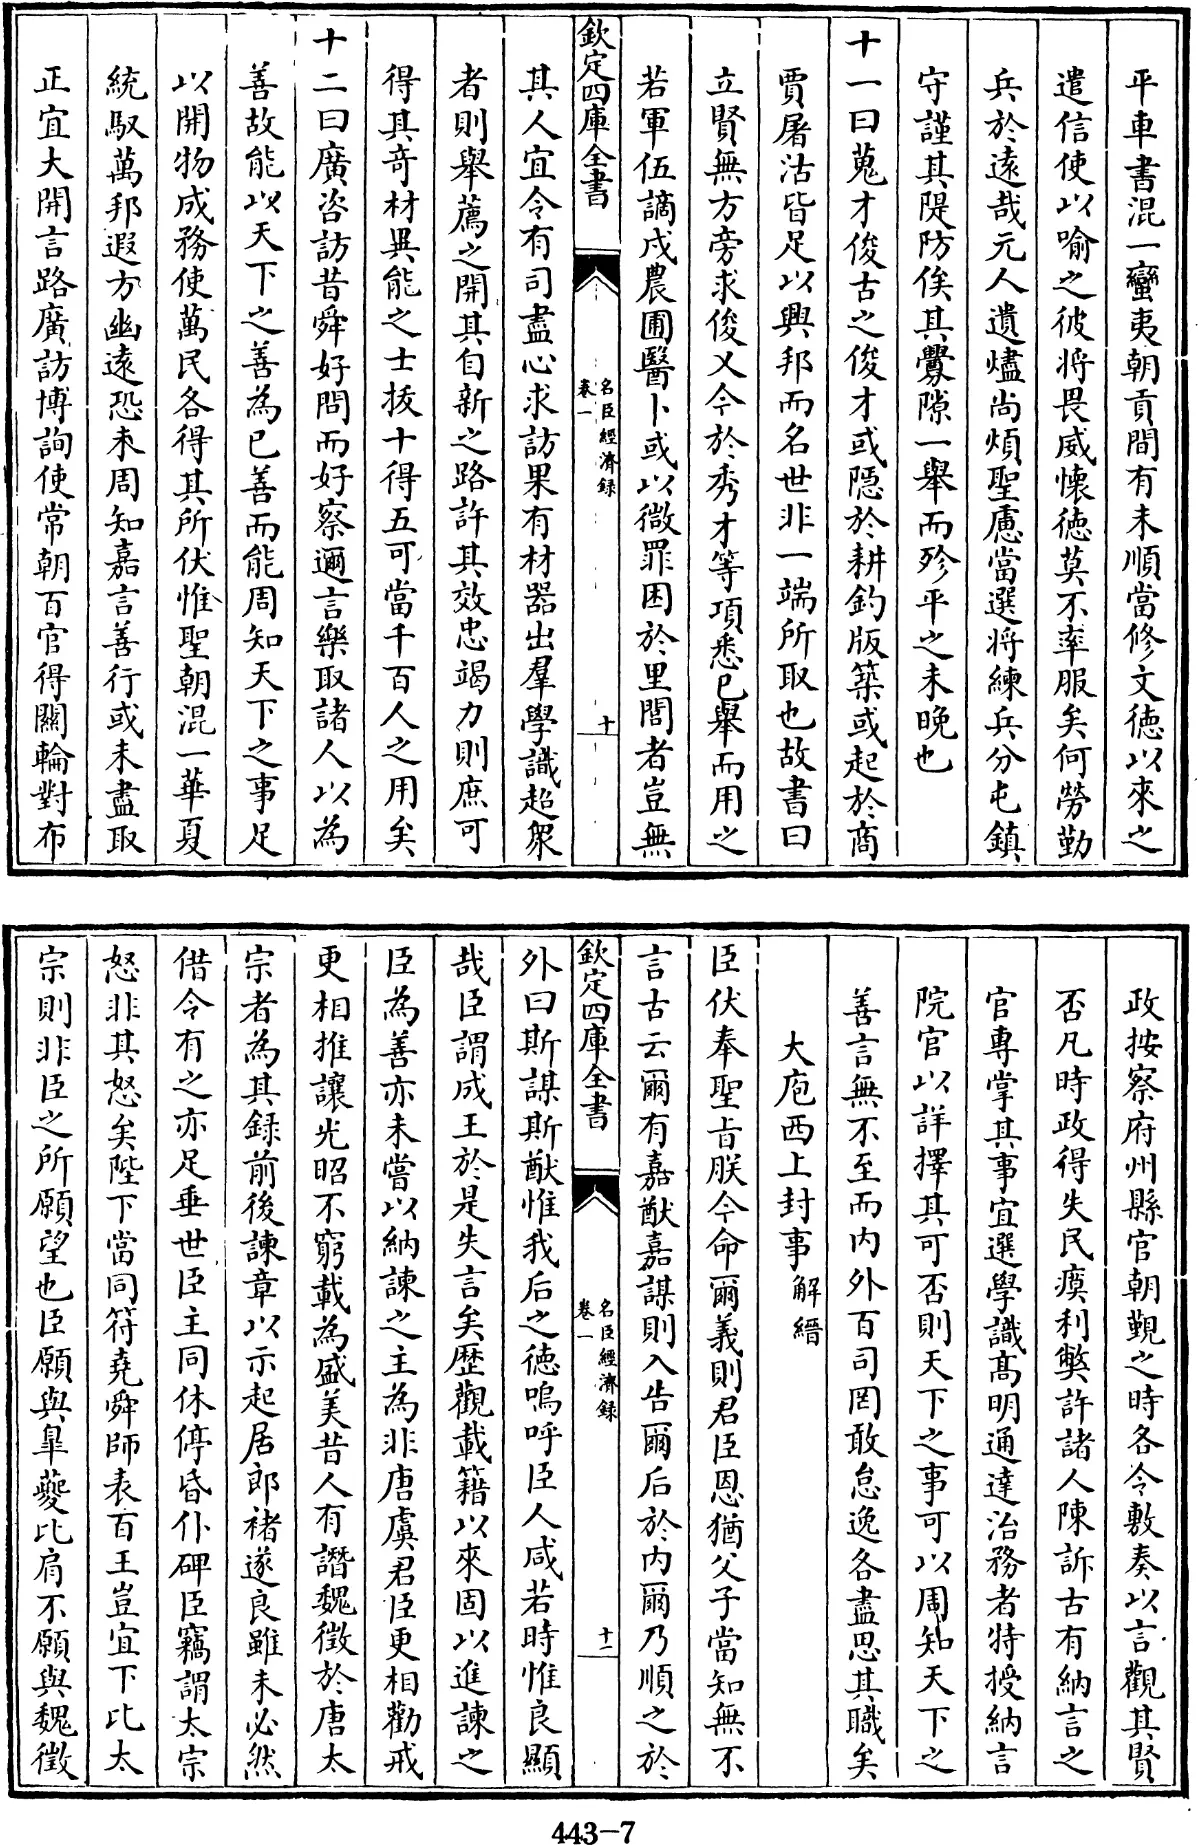 平車書混一蠻夷朝貢間有未順當修文徳以來之
遣信使以喻之彼將畏威懷徳莫不率服矣何勞勤
兵於遠哉元人遺燼尚煩聖慮當選將練兵分屯鎮
守謹其隄防俟其釁隙一舉而殄平之未晚也
十一曰蒐才俊古之俊才或隠於耕釣版築或起於商
賈屠沽皆足以興邦而名世非一端所取也故書曰
立賢無方旁求俊乂今於秀才等項悉已舉而用之
若軍伍謫戍農圃醫卜或以微罪困於里閭者豈無
欽定四庫全書
名臣經濟録
卷一
十
其人宜令有司盡心求訪果有材器出羣學識超衆
者則舉薦之開其自新之路許其效忠竭力則庶可
得其奇材異能之士拔十得五可當千百人之用矣
十二曰廣咨訪昔舜好問而好察邇言樂取諸人以為
善故能以天下之善為已善而能周知天下之事足
以開物成務使萬民各得其所伏惟聖朝混一華夏
統馭萬邦遐方幽遠恐未周知嘉言善行或未盡取
正宜大開言路廣訪博詢使常朝百官得闗輪對布
政按察府州縣官朝覲之時各令敷奏以言觀其賢
否凡時政得失民瘼利弊許諸人陳訴古有納言之
官專掌其事宜選學識髙明通達治務者特授納言
院官以詳擇其可否則天下之事可以周知天下之
善言無不至而内外百司罔敢怠逸各盡思其職矣
大庖西上封事 解縉
臣伏奉聖旨朕今命爾義則君臣恩猶父子當知無不
言古云爾有嘉猷嘉謀則入告爾后於内爾乃順之於
欽定四庫全書
名臣經濟録
卷一
十一
外曰斯謀斯猷惟我后之徳嗚呼臣人咸若時惟良顯
哉臣謂成王於是失言矣歴觀載籍以來固以進諫之
臣為善亦未嘗以納諫之主為非唐虞君臣更相勸戒
更相推讓光昭不窮載為盛美昔人有譖魏徴於唐太
宗者為其録前後諫章以示起居郎褚遂良雖未必然
借令有之亦足垂世臣主同休停昏仆碑臣竊謂太宗
怒非其怒矣陛下當同符堯舜師表百王豈宜下比太
宗則非臣之所願望也臣願與臯夔比肩不願與魏徴
443-7